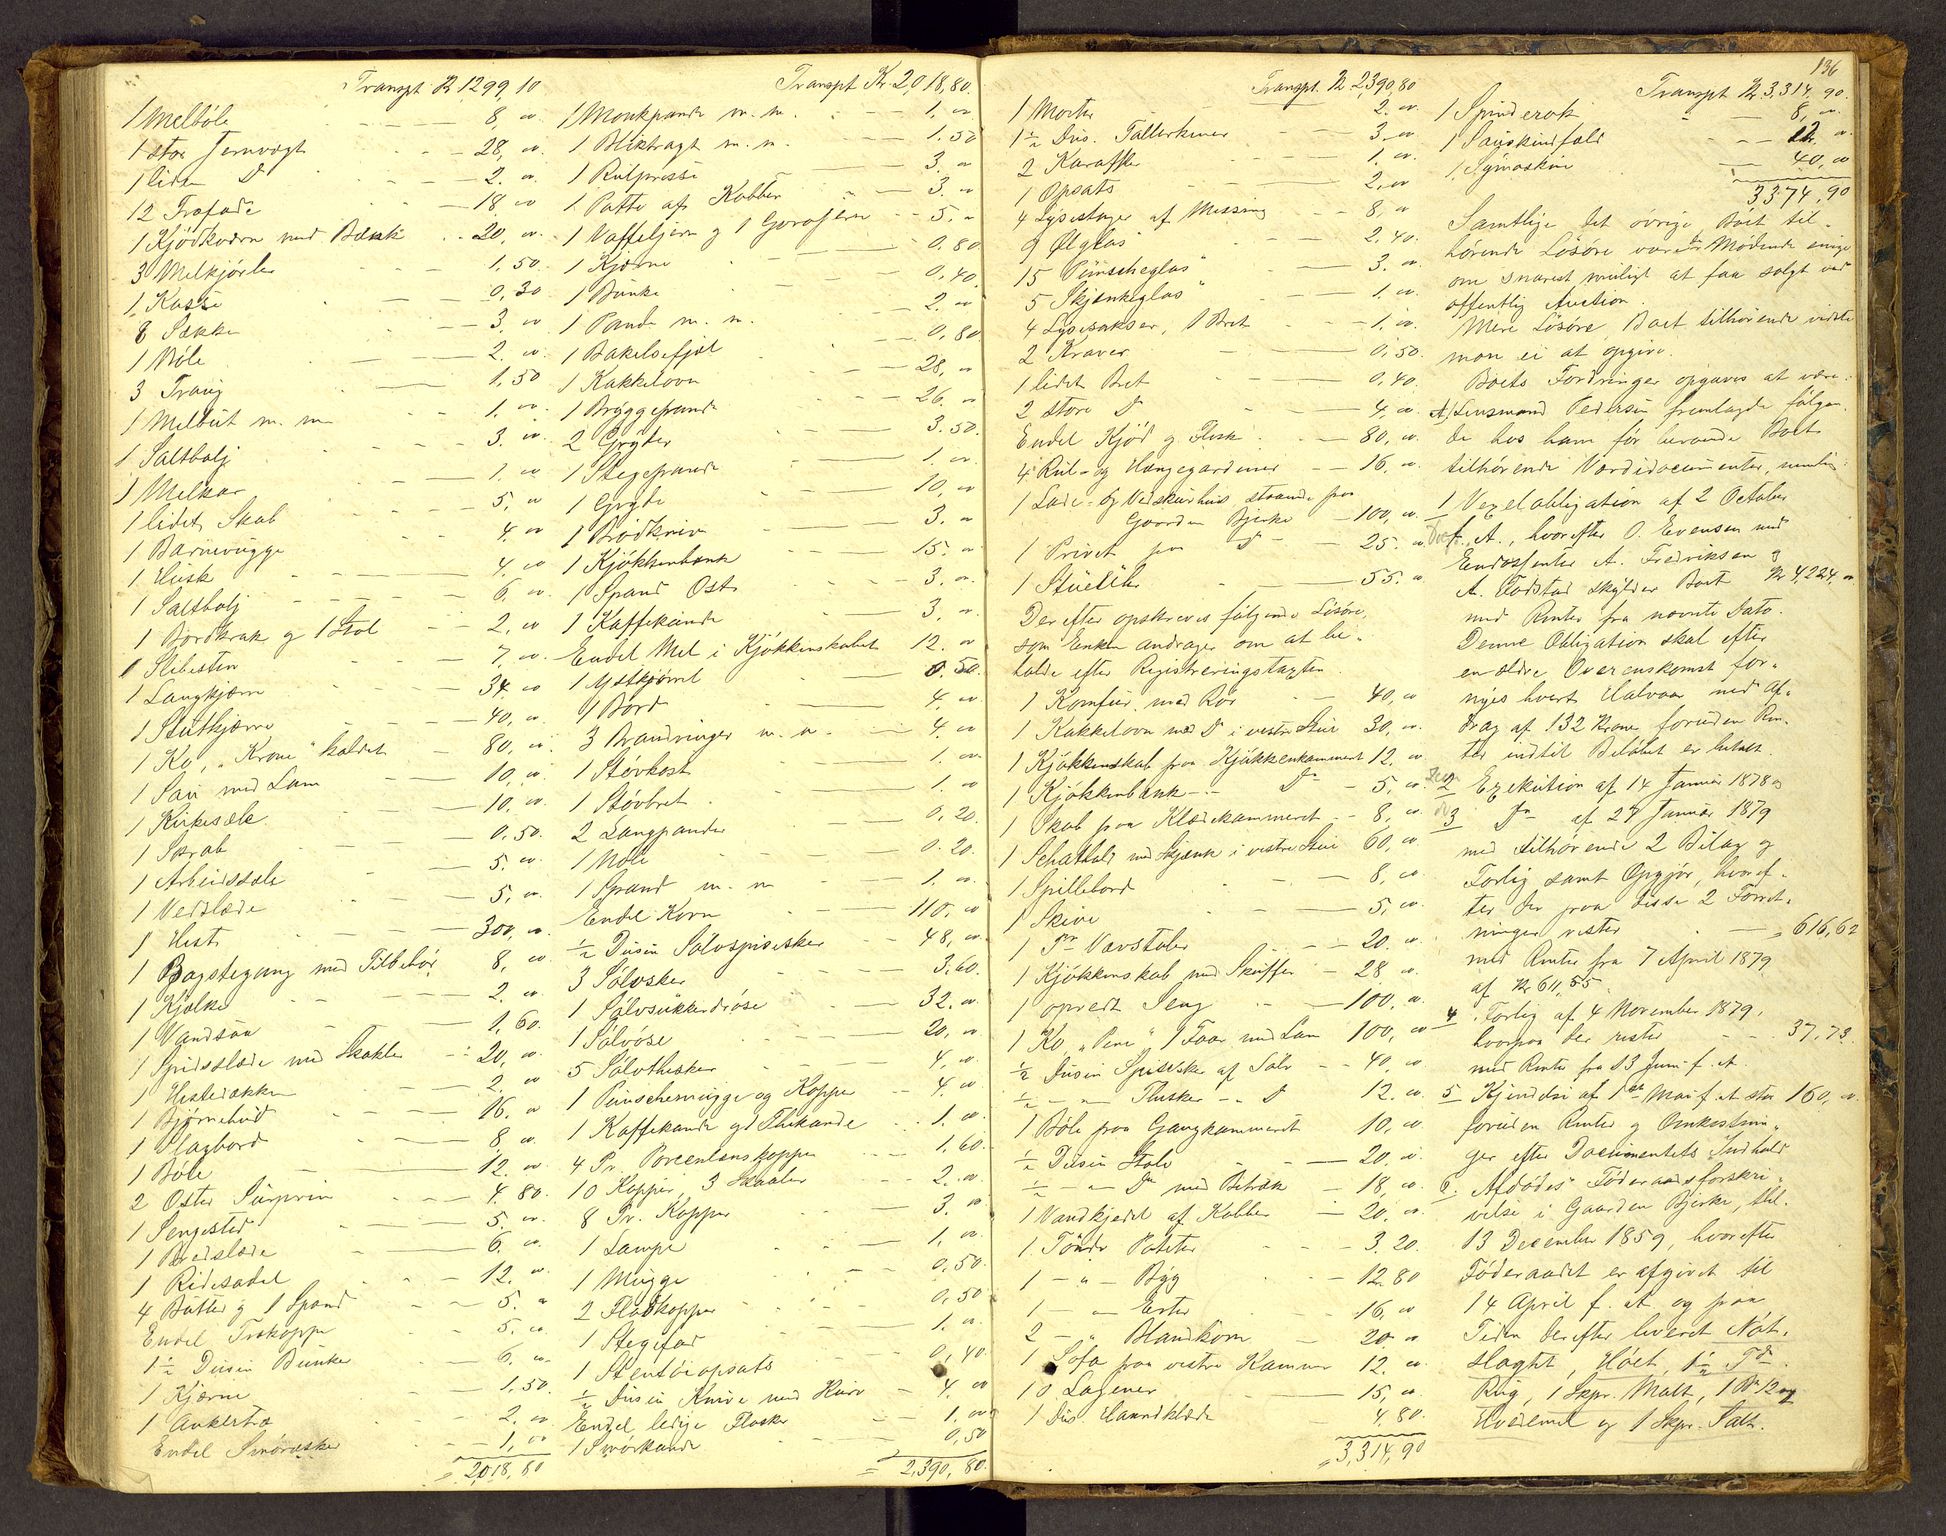 Transpt Kr 1299,10
1 Melböle - 8, 00
1 stor Jernvægt - 28, 00
1 liden Do - 2. 00
12 Træfade - 18. 00
1 Kjödkværn med Bænk - 20, 00
3 Melkjörler - 1.50
1 Kasse - 0,30
8 Sække - 3, 00
1 Böle - 2. 00
3 Traug - 1,50
1 Melbut m. m - 1. 00
1 Saltbalj - 3. 00
1 Melkar - 1. 00
1 lidet Skab - 5, 00
1 Barnevugge - 4. 00
1 Husk - 4. 00
1 Saltbalj - 6. 00
1 Bordkrak og 1 Stol - 2, 00
1 Slibesten - 7, 00
1 Langkjærre - 34, 00
1 Stutkjærre - 40, 00
1 Ko, "Krone" kaldet - 80, 00
1 Sau med Lam - 10, 00
1 Kirkesæle - 10, 00
1 Skrab - 0,50.
1 Arbeidssæle - 5, 00
1 Vedslæde - 5, 00
1 Hest - 300, 00
1 Bogstegang med Tilbehör - 8, 00
1 Kjælke - 2. 00
1 Vandsaa - 1,60.
1 Spidsslæde med Skakler - 20, 00
1 Hestedækken - 2. 00
1 Bjørnehud - 16. 00
1 Slagbord - 8. 00
1 Böle - 12. 00
2 Oster Surprim - 4. 80.
1 Sengested - 5, 00
1 Bredslæde - 6. 00
1 Ridesadel - 12. 00
4 Bötter og 1 Spand - 5. 00
Endel Trækopper - 5. 00
1½ Dusin Bunker - 6. 00
1 Kjærne - 1,50.
1 Ankertræ - 2. 00
Endel Smöræsker - 1, 00
= 2,018, 80
Transpt Kr. 2,018,80.
1 Monkpande m. m. - 1, 00
1 Bliktragt m. m. - 1. 50
1 Rulpresse - 3. 00
1 Potte af Kobber - 3. 00
1 Vaffeljern og 1 Gorojern - 5. 00
1 Kjørne - 0.80
1 Bunke - 0,40
1 Pande m. m. - 2. 00
1 Bakelsefjæl - 0,80
1 Kakkelovn - 28, 00
1 Bryggepande - 26. 00
2 Gryder - 3.50.
1 Stegepande - 1. 00
1 Gryde - 10, 00
1 Brödkniv - 3. 00
1 Kjökkenbænk - 15. 00
1 Spand Ost - 3. 00
1 Kaffekande - 3, 00
Endel Mel i Kjökkenskabet - 12. 00
1 Ystkjørrel - 0.50.
1 Bord - 4. 00
3 Brandringer m. m. - 4. 00
1 Støvkost - 1. 00
1 Støvbret - 1. 00
2 Langpander - 0,20.
1 Böle - 0.20.
1 Spand m. m - 1. 00
Endel Korn - 110, 00
½ Dusin Sölvspiseskeer - 48, 00
3 Sölvskeer - 3.60.
1 Sölvsukkerdrøse - 32. 00
1 Sölvöse - 20, 00
5 Sölvtheskeer - 4. 00
1 Punschemugge og Kopper - 4. 00
1 Kaffekande og 1 Thekande - 1. 00
4 Pr. Porcenlænskopper - 1,60.
10 Kopper, 3 Skaaler - 2. 00
8 Pr. Kopper - 3. 00
1 Lampe - 1. 00
1 Mugge - 0,50.
2 Flødkopper - 0,50
1 Stegefad - 1. 00
1 Stentöiopsats - 0,40
½ Dusin Knive med Kurv - 4. 00
Endel ledige Flasker - 1, 00
1 Smörkande - 0,50
= 2,390, 80.
136
Transpt. Kr 2,390,80
1 Morter - 2. 00
1½ Dus. Tallerkener - 3, 00
2 Karafler - 1. 00
1 Opsats - 2, 00
4 Lysestager af Messing - 8, 00
9 Ölglas - 2,40.
15 Punscheglas - 3. 00
5 Skjænkeglas - 1. 00
4 Lysesakser, 1 Bret - 1, 00
2 Kraver - 0,50.
1 lidet Bret - 0,40.
2 store Do - 4. 00
Endel Kjöd og Flesk - 80, 00
4 Rul- og Hængegardiner - 16, 00
1 Lade- og Vedskurhus staaende paa
Gaarden Bjerke - 100, 00
1 Privet paa Do - 25. 00
1 Stueuhr - 55. 00
Derefter opskreves følgende Lösöre,
som Enken andrager om at be-
holde efter Registreringstaxten
1 Komfur med Rör - 40, 00
1 Kakkelovn med Do i vestre Stue - 30, 00
1 Kjökkenskab paa Kjökkenkammert - 12. 00
1 Kjökkenbænk - Do - 5, 00
1 Skab paa Klædekammeret - 8, 00
1 Schattol med Skjænk i vestre Stue - 60, 00
1 Spillebord - 8, 00
1 Skive - 5, 00
1 Pr Vævstoler - 20. 00
1 Kjökkenskab med Skuffer - 28 00
1 opredt Seng - 100, 00
1 Ko "Pene", 1 Faar med Lam - 100, 00
½ Dusin Spiseskeer af Sölv - 40, 00
½ - " - Theskeer - " - Do - 12. 00
1 Böle paa Gangkammeret - 10, 00
½ Dusin Stole - 20, 00
½ - " - Do med Betræk - 18, 00
1 Vandkjedel af Kobber - 20. 00
1 Tönde Poteter - 3.20.
1 - " - Byg - 12.80
1 - " - Erter - 16, 00
2 - " Blandkorn - 20. 00
1 Sofa paa vestre Kammer - 12. 00
10 Lagener - 15, 00
1 Dus Haandklæde - 4. 80.
= 3,314,90
Transpt Kr 3,314,90.
1 Spinderok - 8, 00
1 Sauskindfald - 12. 00
1 Symaskine - 40, 00
3374,90
Samtlige det övrige Boet til-
hørende Lösöre var de Mödende enige
om snarest muligt at faa solgt ved
offentlig Auction.
Mere Lösöre Boet tilhørende vidste
man ei at opgive.
Boets Fordringer opgaves at være:
A/ Lensmand Pedersen fremlagde følgen-
de hos ham för beroende Boet
tilhörende Værdidocumenter, nemlig:
1 Vexelobligation af 2 October
f. A., hvorefter O. Evensen med
Endossenter A. Fredriksen og
A. Flodstad skylder Boet Kr 4,224, 00
med Renter fra nævnte Dato.
Denne Obligation skal efter
en ældre Overenskomst for-
nyes hvert Halvaar med Af-
drag af 132 Kroner foruden Ren-
ter indtil Belöbet er betalt.
2 Exekution af 14 Januar 1878 og
3 Do af 24 Januar 1879
med tilhörende 2 Bilag og
Forlig samt Opgjör, hvoref-
ter der paa disse 2 Forret-
ninger rester - " 616,62
med Renter fra 7 April 1879
af Kr 611,55
4. Forlig af 4 November 1879,
hvorpaa der rester - 37,73.
med Renter fra 13 Juni f. A.
5 Kjendelse af 1ste Mai f. A. stor 160, 00
foruden Renter og Omkostnin-
ger efter Documentets Indhold
6. Afdödes Föderaadsforskri-
velse i Gaarden Bjerke, thl.
13 December 1859, hvorefter
Föderaadet er afgivet til
14 April f. A. og paa
Tiden derefter leveret Nöt.
slagtet, Höet, 1½ Tdr.
Rug, 1 Skpr. Malt, 1 B 12 og
Hvedemel og 1 Skpr. Salt.